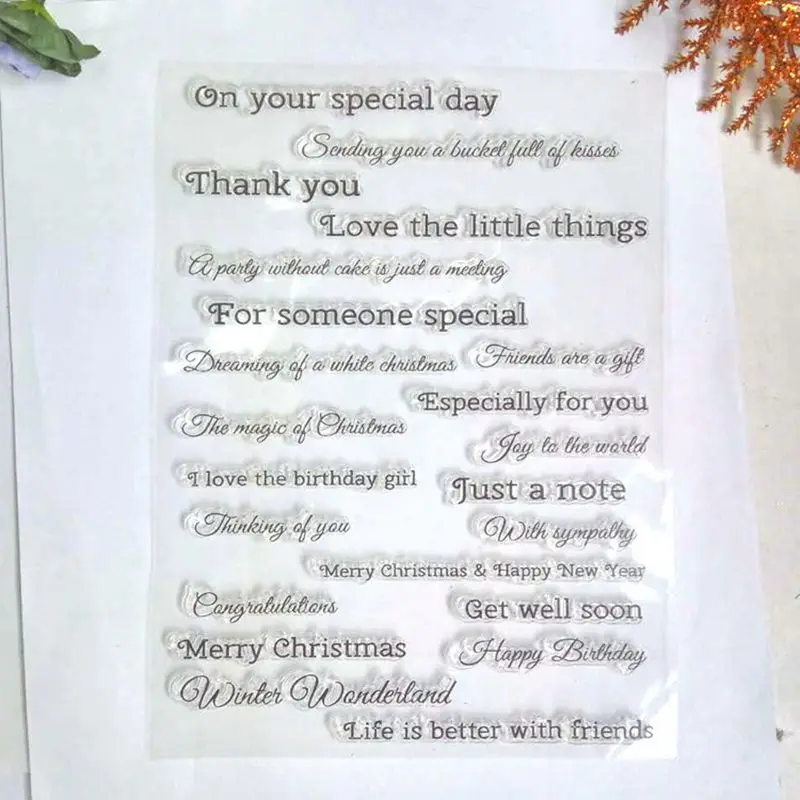 On your special day
Sending you a bucket full of kisses
Thank you
Love the little things
A party without cake is just a meeting
For someone special
Dreaming of a white christmas
Friends are a gift
Especially for you
The magic of Christmas
Joy to the world
I love the birthday girl
Just a note
Thinking of you
With sympathy
Merry Christmas & Happy New Year
Congratulations
Get well soon
Merry Christmas
Happy Birthday
Winter Wonderland
Life is better with friends